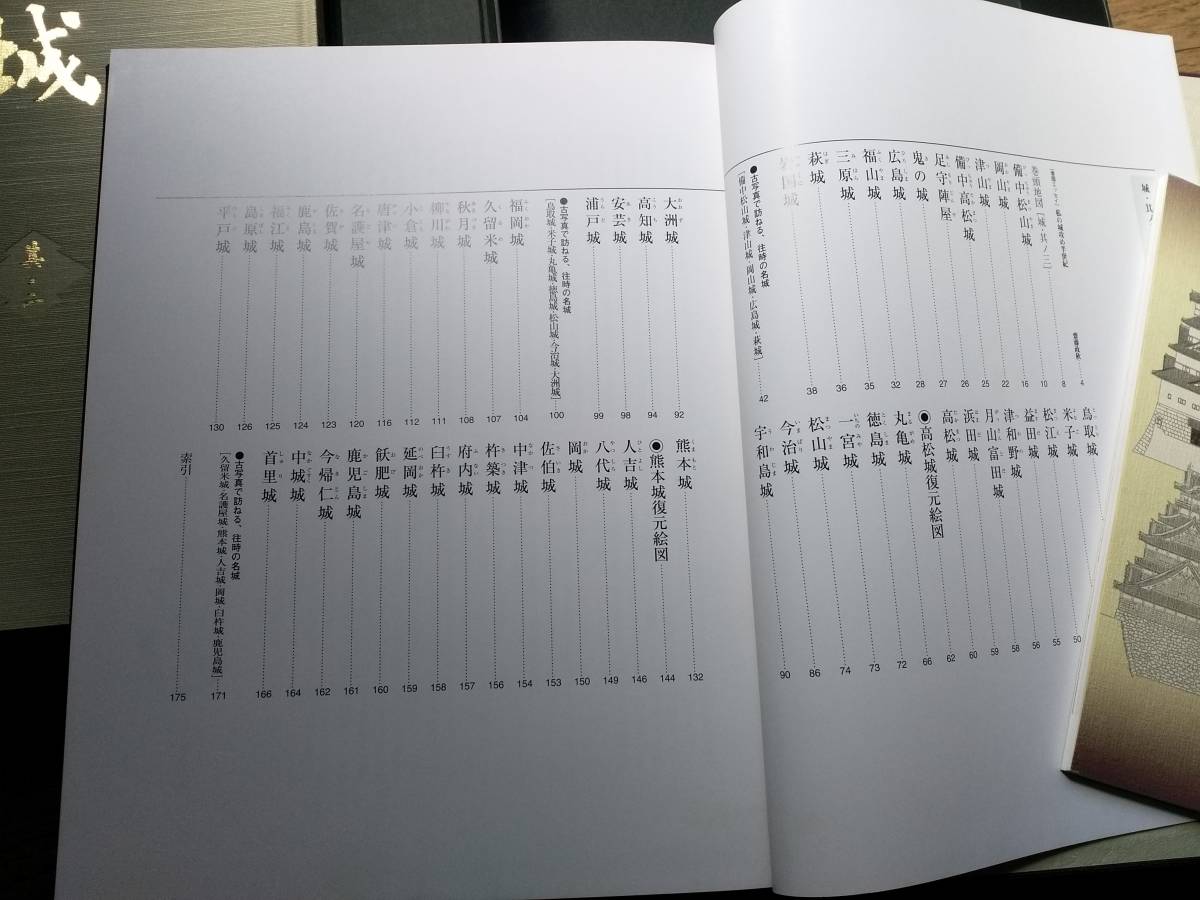 城
其ノ二
城・其ノ
私の城攻め半世紀 4
巻頭地図［城 其ノ三］ 8
備中松山城 10
岡山城 16
津山城 22
備中高松城 26
足守陣屋 27
鬼の城 28
広島城 32
福山城 35
三原城 36
萩城 38
岩国城
●古写真で訪ねる、往時の名城 42
［備中松山城・津山城・岡山城・広島城・萩城］
鳥取城
米子城
松江城
益田城
津和野城
月山富田城
浜田城
高松城
◉高松城復元絵図
丸亀城
徳島城
一宮城
松山城
今治城
宇和島城
50 55 56 58 59 60 62 66 72 73 74 86 90
大洲城 92
高知城 94
安芸城 98
浦戸城 99
●古写真で訪ねる、往時の名城 100
［鳥取城・米子城・丸亀城・徳島城・松山城・今治城・大洲城］
福岡城 104
久留米城 107
秋月城 108
柳川城 111
小倉城 112
唐津城 116
名護屋城 120
佐賀城 124
鹿島城 124
福江城 125
島原城 126
平戸城 130
熊本城 132
◉熊本城復元絵図 144
人吉城 146
八代城 149
岡城 150
佐伯城 153
中津城 154
杵築城 156
府内城 157
臼杵城 158
延岡城 159
飫肥城 160
鹿児島城 161
今帰仁城 162
中城城 164
首里城 166
●古写真で訪ねる、往時の名城 171
［久留米城・名護屋城・熊本城・人吉城・岡城・臼杵城・鹿児島城］
索引 175